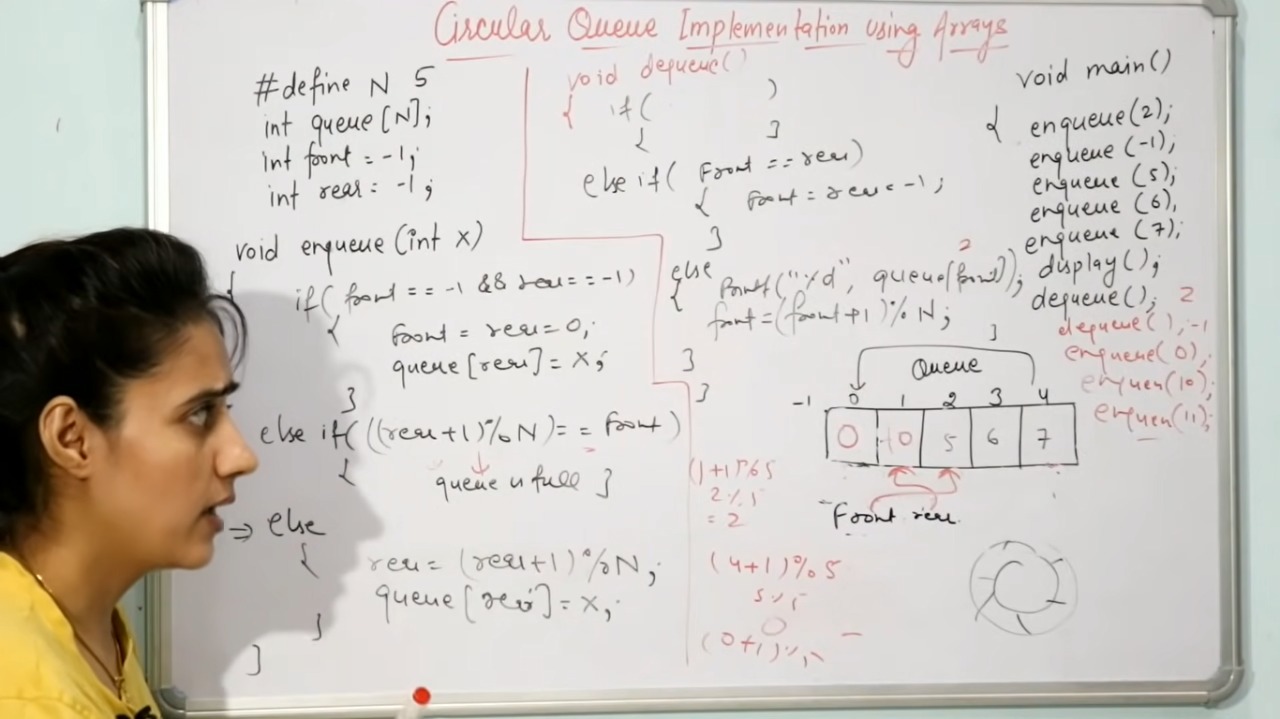 Circular Queue Implementation using Arrays
#define N 5
int queue[N];
int front = -1;
int rear = -1;
void enqueue (int x)
{
if( front == -1 && rear == -1)
{ front = rear = 0;
queue [rear] = x;
}
else if( ((rear+1)%N) == front)
{ queue is full }
→ else
{ rear = (rear+1)%N;
queue [rear] = x;
}
}
void dequeue()
{ if( )
{ }
else if( Front == rear)
{ front = rear = -1;
}
else
{ printf("%d", queue[front]);
2
front = (front+1)%N;
}
}
}
void main()
{ enqueue(2);
enqueue (-1);
enqueue (5);
enqueue (6),
enqueue (7);
display();
dequeue(); 2
dequeue(); -1
enqueue(0);
enqueue(10);
enqueue(11);
Queue
-1 0 1 2 3 4
0 10 5 6 7
Front rear
(1+1)%5
2%5
= 2
(4+1)%5
5%5
0
(0+1)%5